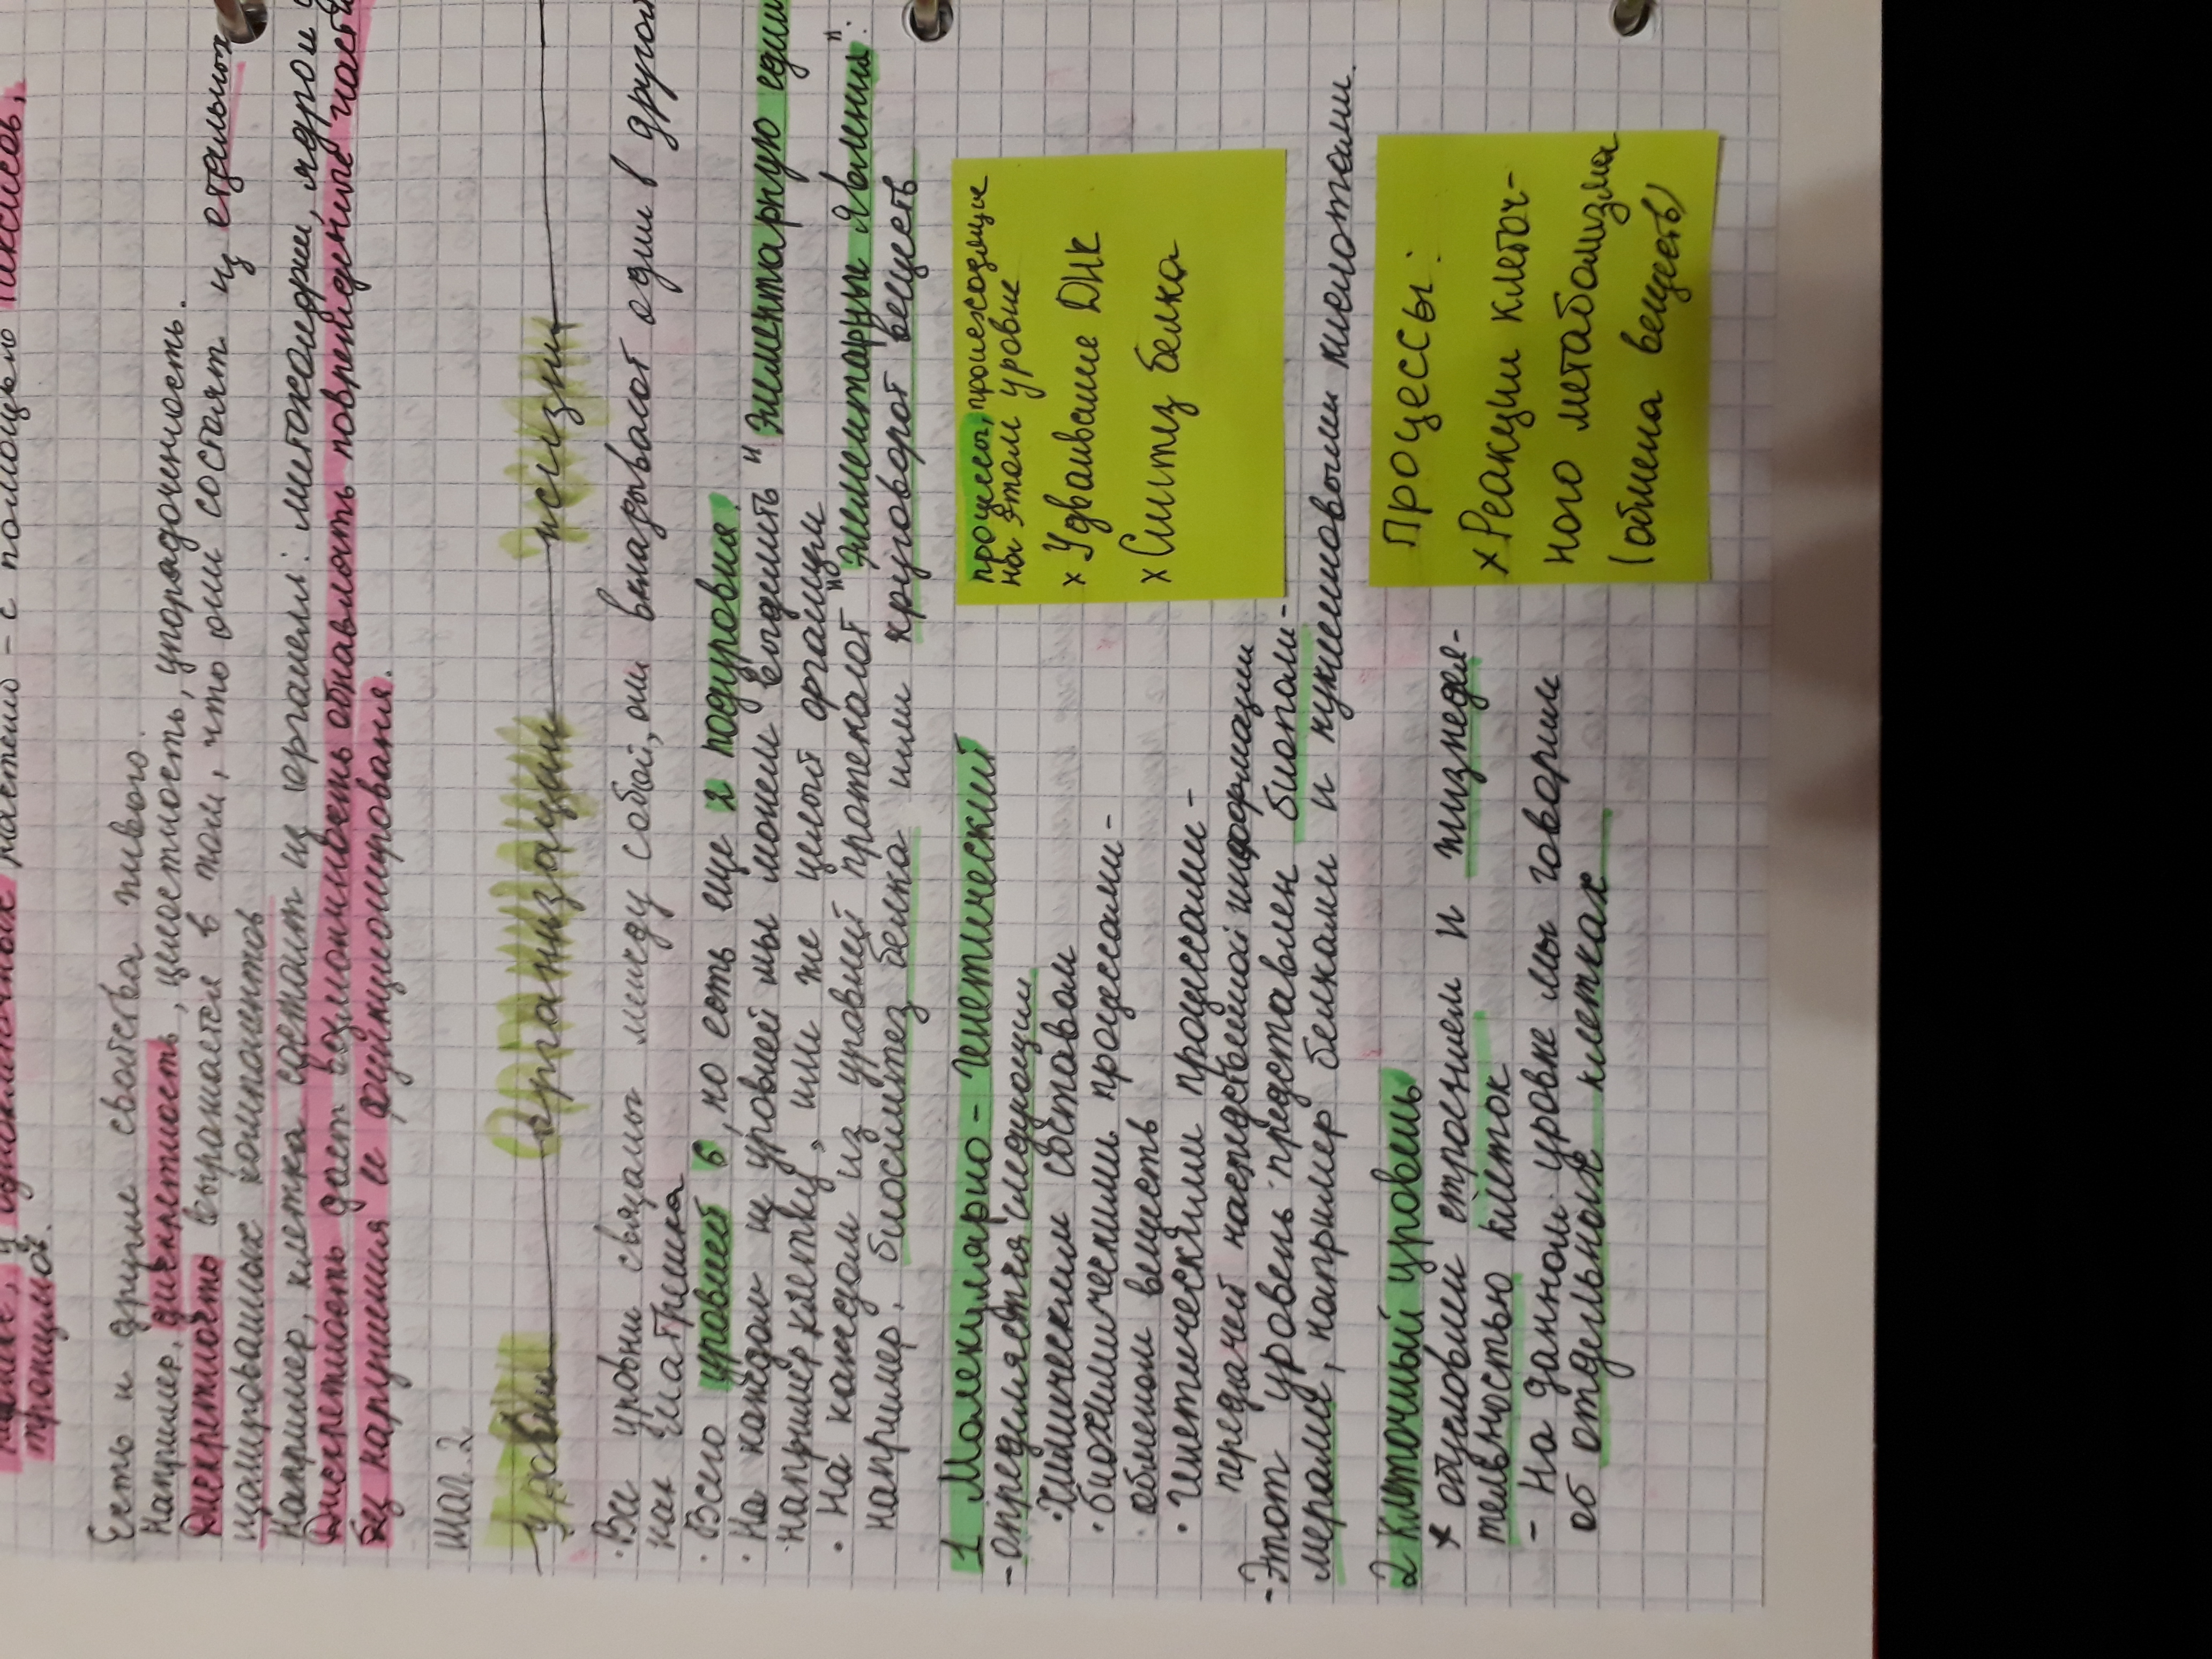 частей - с помощью
тропизмов.
Есть и другие свойства живого.
Например, дискретность, целостность, упорядоченность.
Дискретность выражается в том, что они состоят из отдельных
изолированных компонентов
Например, клетка состоит из органелл: митохондрии, ядро и
Дискретность дает возможность обнавлять повреждённые части
без нарушения и функционирования.
шаг. 2
уровни организации жизни
· Все уровни связаны между собой, они вкладывают один в другой
как матрешка
· Всего уровней 6, но есть еще 2 подуровня.
· На каждом из уровней мы можем выделить "Элементарную един
· например клетку, или же целый организм
· На каждом из уровней протекают "Элементарные явления".
например, биосинтез белка или круговорот веществ
1 Молекулярно-генетический
- определяется следующим
· Химическим составом
· биохимическими процессами-
· обменом веществ
· генетическими процессами-
передачей наследственной информации
- Этот уровень представлен биополи-
мерами, например белками и нуклеиновыми кислотами.
процессы, происходящие
на этом уровне
х Удваивание ДНК
х Синтез белка
2 Клеточный уровень
х обусловлен строением и жизнедея-
тельностью клеток
- На данном уровне мы говорим
об отдельных клетках
Процессы:
х Реакции клеточ-
ного метаболизма
(обмена веществ)